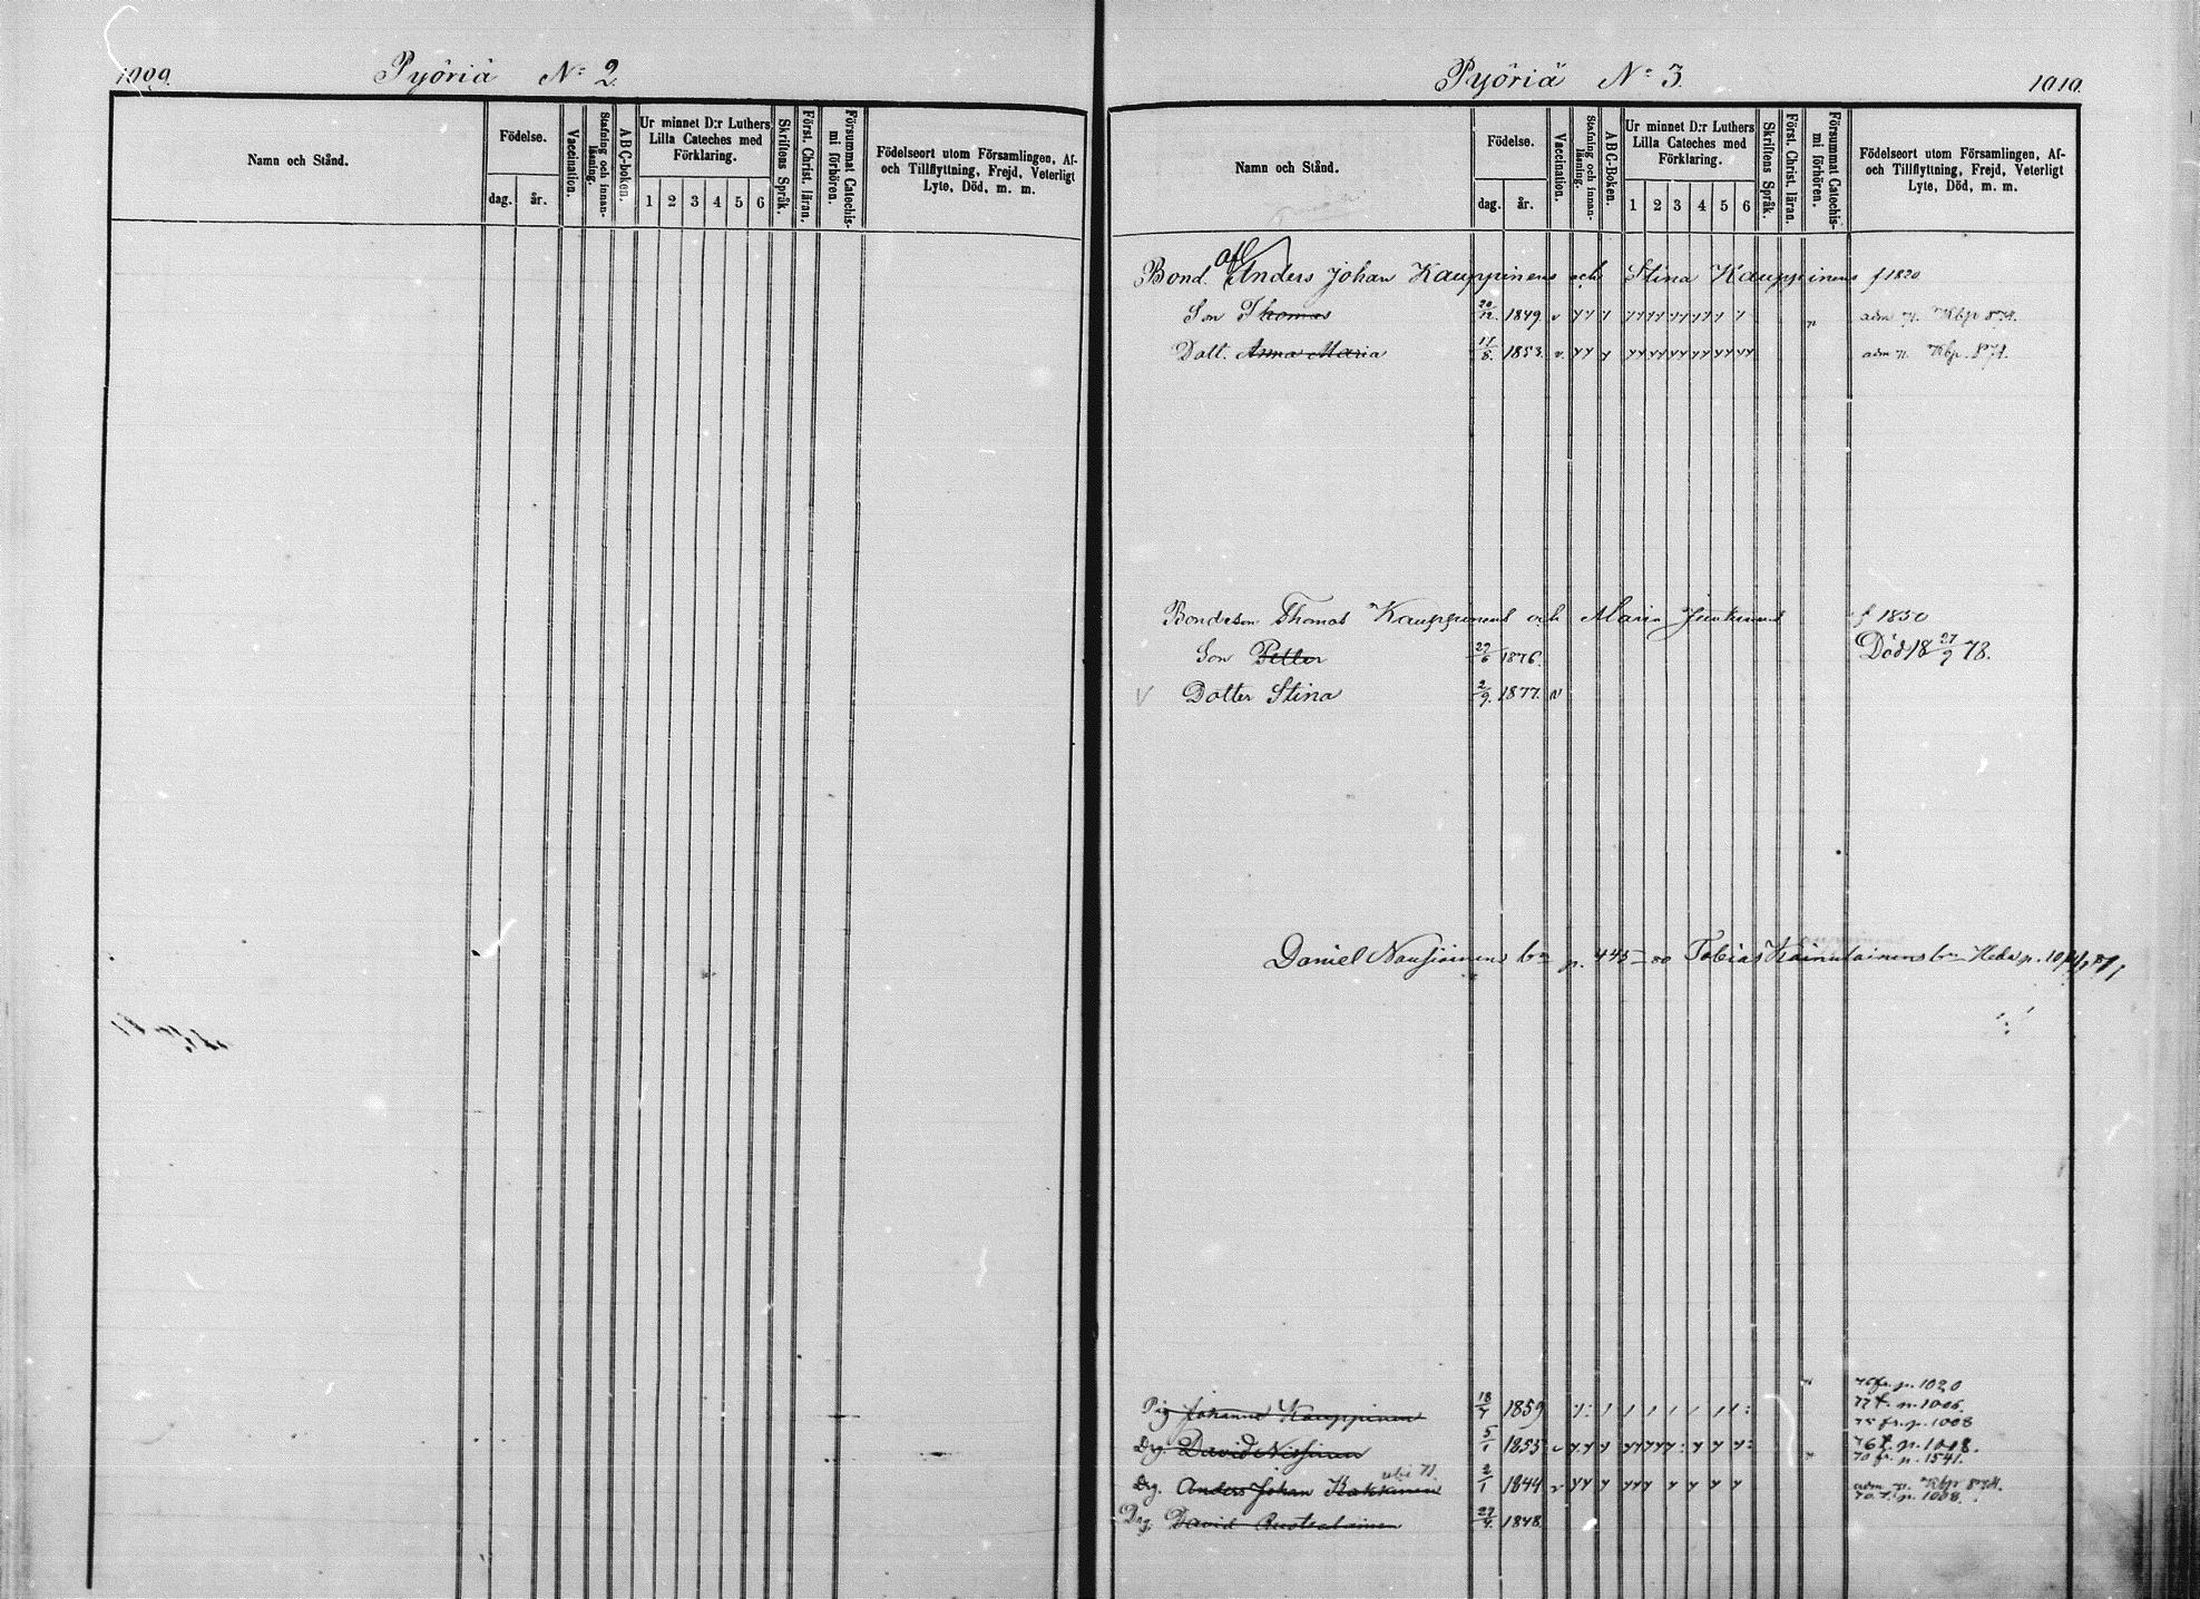 1009.
Pyöriä No 2
Namn och Stånd.
Födelse.
dag.
år.
Vaccination.
Stafning och innan-
läsning.
ABC-boken.
Ur minnet D:r Luthers
Lilla Cateches med
Förklaring.
1 2 3 4 5 6
Skriftens Språk.
Först. Christ. läran.
Försummat Catechis-
mi förhören.
Födelseort utom Församlingen, Af-
och Tillflyttning, Frejd, Veterligt
Lyte, Död, m. m.
Pyöriä No 3.
1010.
Namn och Stånd.
Födelse.
dag.
år.
Vaccination.
Stafning och innan-
läsning.
ABC-Boken.
Ur minnet D:r Luthers
Lilla Cateches med
Förklaring.
1 2 3 4 5 6
Skriftens Språk.
Först. Christ. läran.
Försummat Catechis-
mi förhören.
Födelseort utom Församlingen, Af-
och Tillflyttning, Frejd, Veterligt
Lyte, Död, m. m.
Bond. afl Anders Johan Kauppinens och Stina Kauppinens f 1820
Son Thomas 20/12. 1849. v
Dott. Anna Maria 11/8. 1853. v.
Bondeson Thomas Kauppinens och Maria f 1850
Son Petter 29/6 1876. Död 18 27/9 78.
Dotter Stina 2/9. 1877. v
Daniel Nousiainens p. 445 Tobias
76 fr. p. 1020
Pig Johanna Kauppinen 18/7 1859 77 t. p. 1006.
75 fr. p. 1008
Drg. David Nissinen 5/1 1855 v 76 t. p. 1018.
70 fr. p. 1541.
Drg. Anders Johan 2/1 1844 v
70 t. p. 1008.
Drg. David 27/4. 1848.